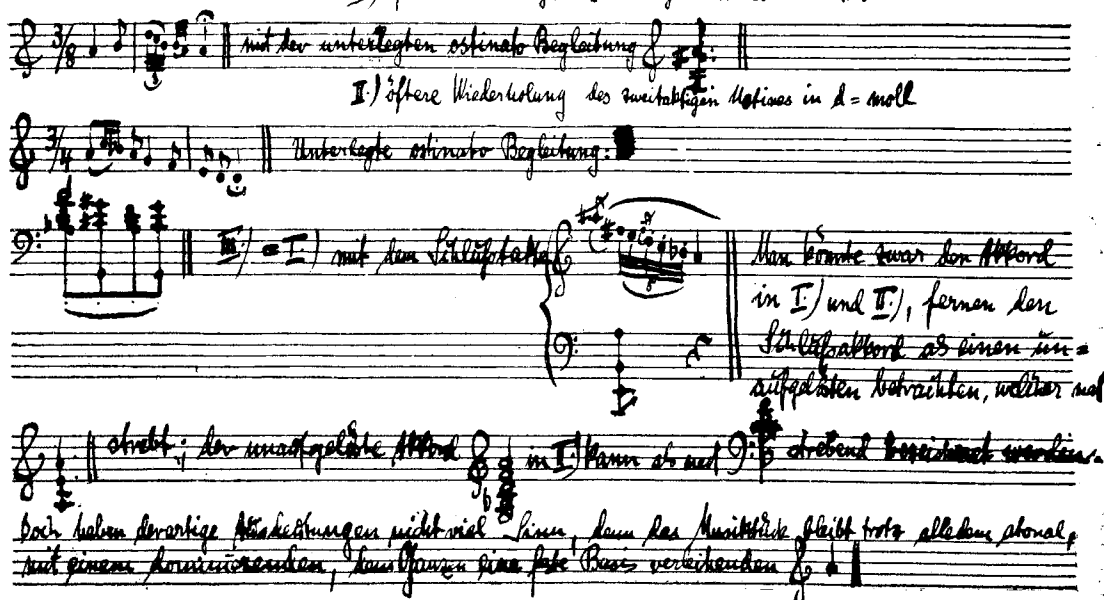 3/8 mit der unterlegten ostinato Begleitung
II.) öftere Wiederholung des zweitaktigen Motives in d=moll
3/4 Unterlegte ostinato Begleitung:
III.) = I.) mit dem Schlußtakte
Man könnte zwar den Akkord
in I.) und II.), ferner den
Schlußakkord als einen un=
aufgelösten betrachten, welcher nach
strebt; der unaufgelöste Akkord in I.) kann als nach strebend bezeichnet werden.
Doch haben derartige nicht viel Sinn, denn das Musikstück bleibt trotz alledem atonal,
mit einem dominierenden, dem Ganzen eine feste Basis verleihenden